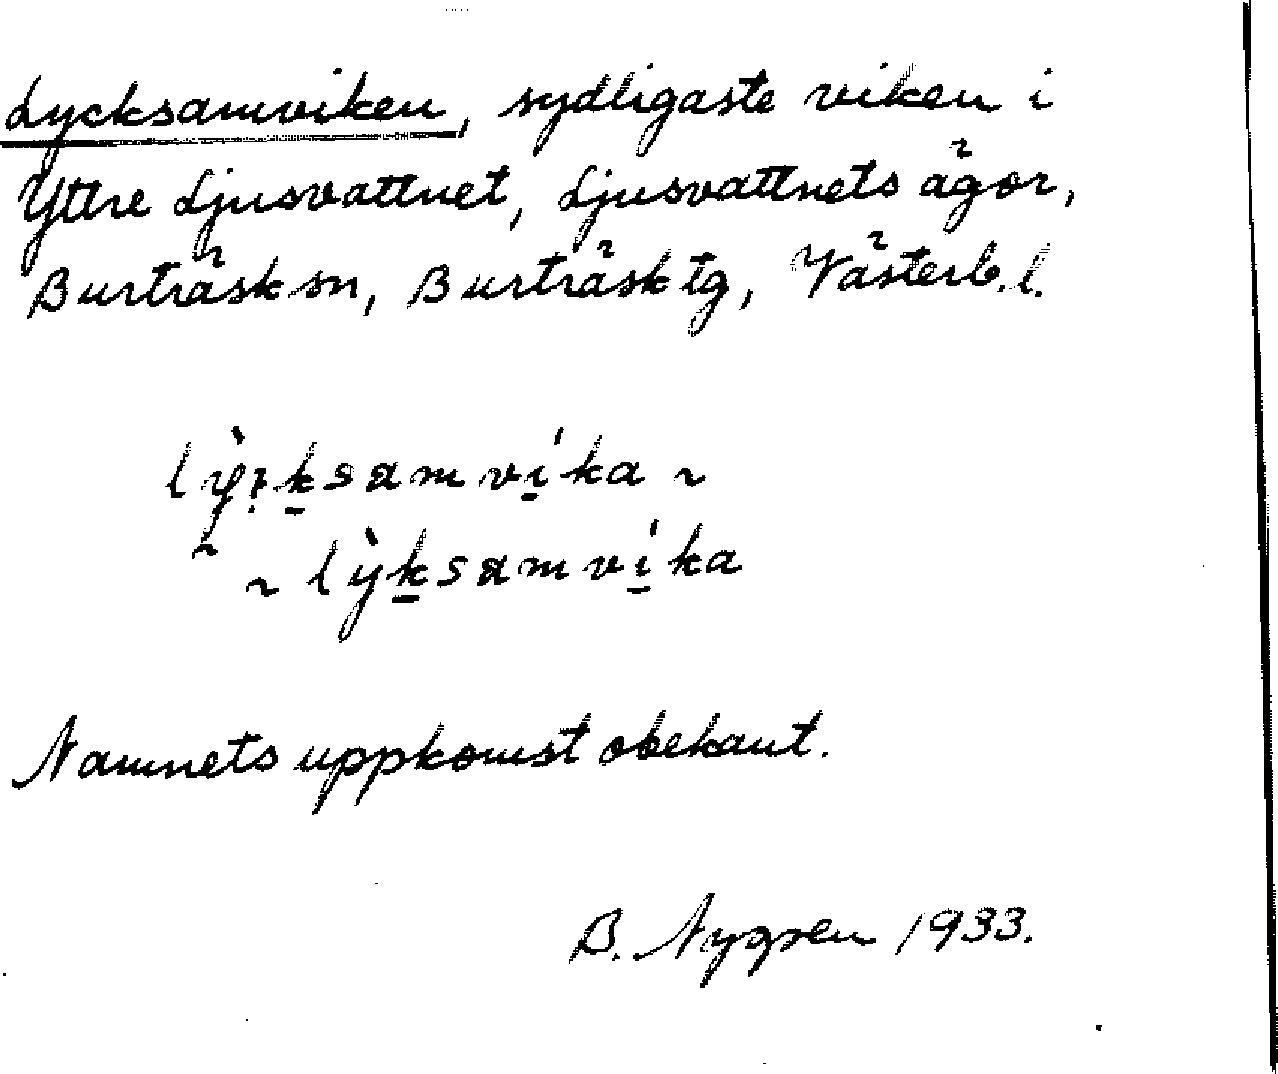 Lycksamviken, sydligaste viken i
Yttre Ljusvattnet, Ljusvattnets ägor,
Burträsk sn, Burträsk tg, Västerb. l.
~ lỳksamví̱ka
Namnets uppkomst obekant.
B. Nygren 1933.